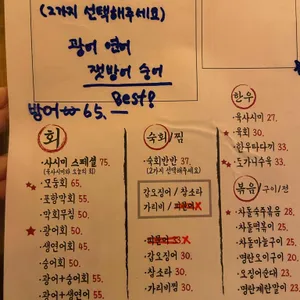 (2가지 선택해주세요)
광어 연어
잿방어 숭어
Best?
방어 65.
회
·사시미 스페셜 75.
·모둠회 65.
·포항막회 55.
·막회무침 50.
·광어회 50.
·생연어회 45.
·숭어회 50.
·광어+숭어회 55.
·광어+생연어 55.
숙회/찜
·숙회반반 37.
(2가지 선택해주세요)
갑오징어/참소라
가리비/
·갑오징어 30.
·참소라 30.
·가리비찜 30.
한우
·육사시미 27.
·육회 30.
·한우타다끼 33.
·도가니수육 33.
볶음/구이/전
·차돌숙주볶음 28.
·차돌떡볶이 25.
·차돌마늘구이 25.
·명란오이구이 20.
·오징어순대 23.
·명란계란말이